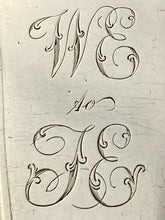 WE
to
JE